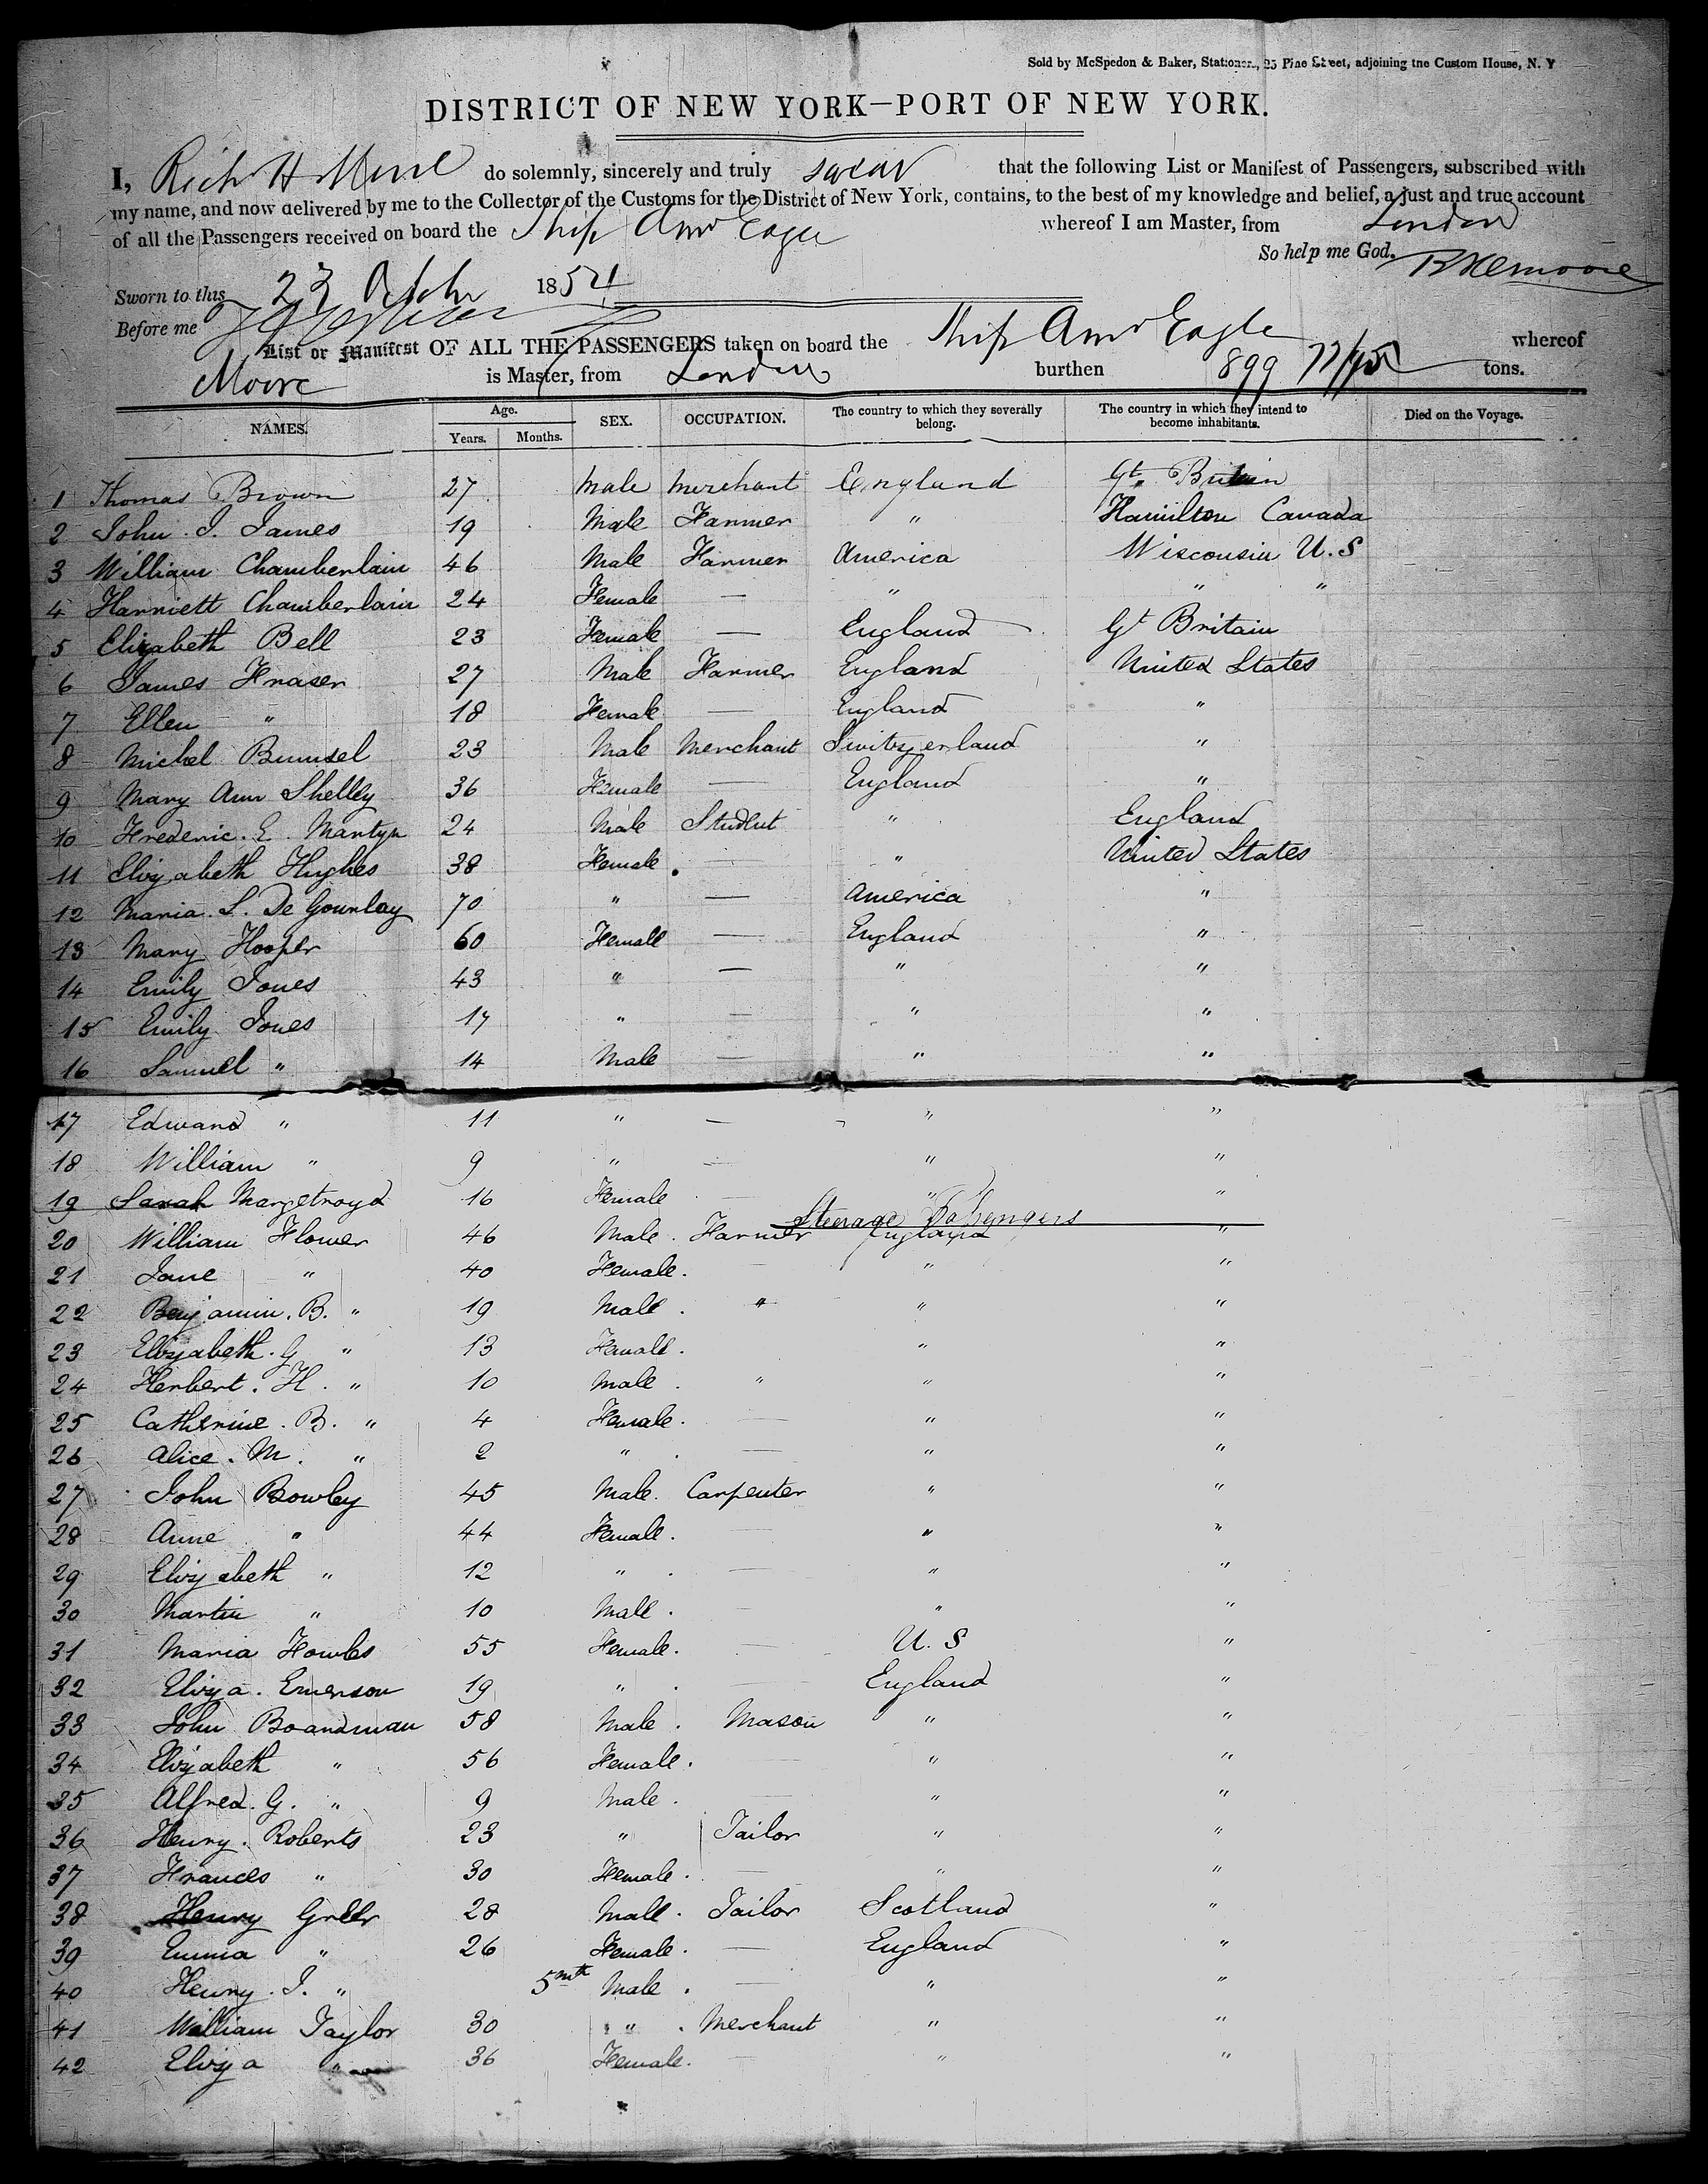 Sold by McSpedon & Baker, Stationers, 25 Pine Street, adjoining the Custom House, N. Y
DISTRICT OF NEW YORK—PORT OF NEW YORK.
I, Rich H Moore do solemnly, sincerely and truly swear that the following List or Manifest of Passengers, subscribed with
my name, and now delivered by me to the Collector of the Customs for the District of New York, contains, to the best of my knowledge and belief, a just and true account
of all the Passengers received on board the Ship Amn Eagle whereof I am Master, from London
So help me God. R H Moore
Sworn to this 23 Octbr 1854
Before me
List or Manifest OF ALL THE PASSENGERS taken on board the Ship Amn Eagle whereof
Moore is Master, from London burthen 899 77/95 tons.
NAMES. Age. Years. Months. SEX. OCCUPATION. The country to which they severally belong. The country in which they intend to become inhabitants. Died on the Voyage.
1 Thomas Brown 27 Male Merchant England Gt. Britain
2 John. J. James 19 Male Farmer " Hamilton Canada
3 William Chamberlain 46 Male Farmer America Wisconsin U.S
4 Harriett Chamberlain 24 Female — " " "
5 Elizabeth Bell 23 Female — England Gt Britain
6 James Fraser 27 Male Farmer England United States
7 Ellen " 18 Female — England "
8 Michel Bumsel 23 Male Merchant Switzerland "
9 Mary Ann Shelley 36 Female — England "
10 Frederic. E. Martyn 24 Male Student " England
11 Elizabeth Hughes 38 Female. " United States
12 Maria. S. De Gourlay 70 " — America "
13 Mary Hooper 60 Female — England "
14 Emily Jones 43 " — " "
15 Emily Jones 17 " — " "
16 Samuel " 14 Male — " "
17 Edward " 11 " — " "
18 William " 9 " — " "
19 Sarah Margetroyd 16 Female — " "
Steerage Passengers
20 William Flower 46 Male. Farmer England "
21 Jane " 40 Female. " "
22 Benjamin. B. " 19 Male. " " "
23 Elizabeth. G " 13 Female. " "
24 Herbert. H. " 10 Male. " " "
25 Catherine. B. " 4 Female. — " "
26 Alice. M. " 2 " . — " "
27 John Bowley 45 Male. Carpenter " "
28 Anne " 44 Female. — " "
29 Elizabeth " 12 " . — " "
30 Martin " 10 Male. — " "
31 Maria Howles 55 Female. — U. S "
32 Eliza. Emerson 19 " . — England "
33 John Boardman 58 Male. Mason " "
34 Elizabeth " 56 Female. — " "
35 Alfred. G. " 9 Male. — " "
36 Henry. Roberts 23 " Tailor " "
37 Frances " 30 Female. — " "
38 Henry Greer 28 Male. Tailor Scotland "
39 Emma " 26 Female. — England "
40 Henry. J. " 5 mth Male. — " "
41 William Taylor 30 " . Merchant " "
42 Eliza " 36 Female. — " "